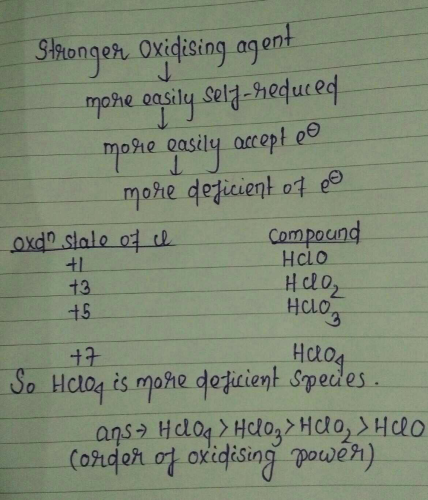 Stronger oxidising agent
↓
more easily self-reduced
↓
more easily accept e⊖
↓
more deficient of e⊖
oxdⁿ state of Cl compound
+1 HClO
+3 HClO₂
+5 HClO₃
+7 HClO₄
So HClO₄ is more deficient species.
ans→ HClO₄ > HClO₃ > HClO₂ > HClO
(order of oxidising power)